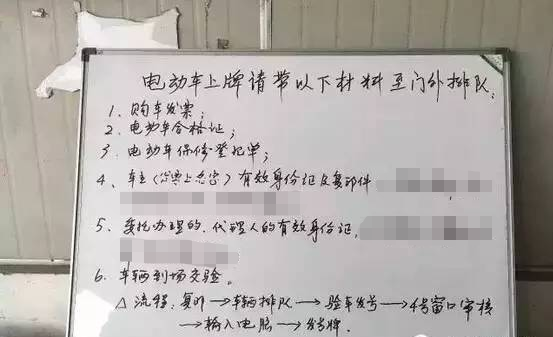 电动车上牌请带以下材料至门外排队:
1、购车发票;
2、电动车合格证;
3、电动车保修登记单;
4、车主(发票上名字)有效身份证及复印件
5、委托办理的、代理人的有效身份证,
6、车辆到场交验。
△流程:复印→车辆排队→验车发号→4号窗口审核
→输入电脑→发号牌.